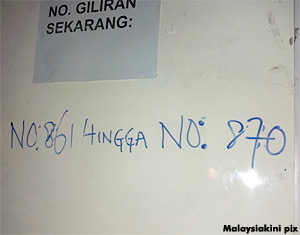 NO. GILIRAN
SEKARANG:
NO:861 HINGGA NO: 870
Malaysiakini pix